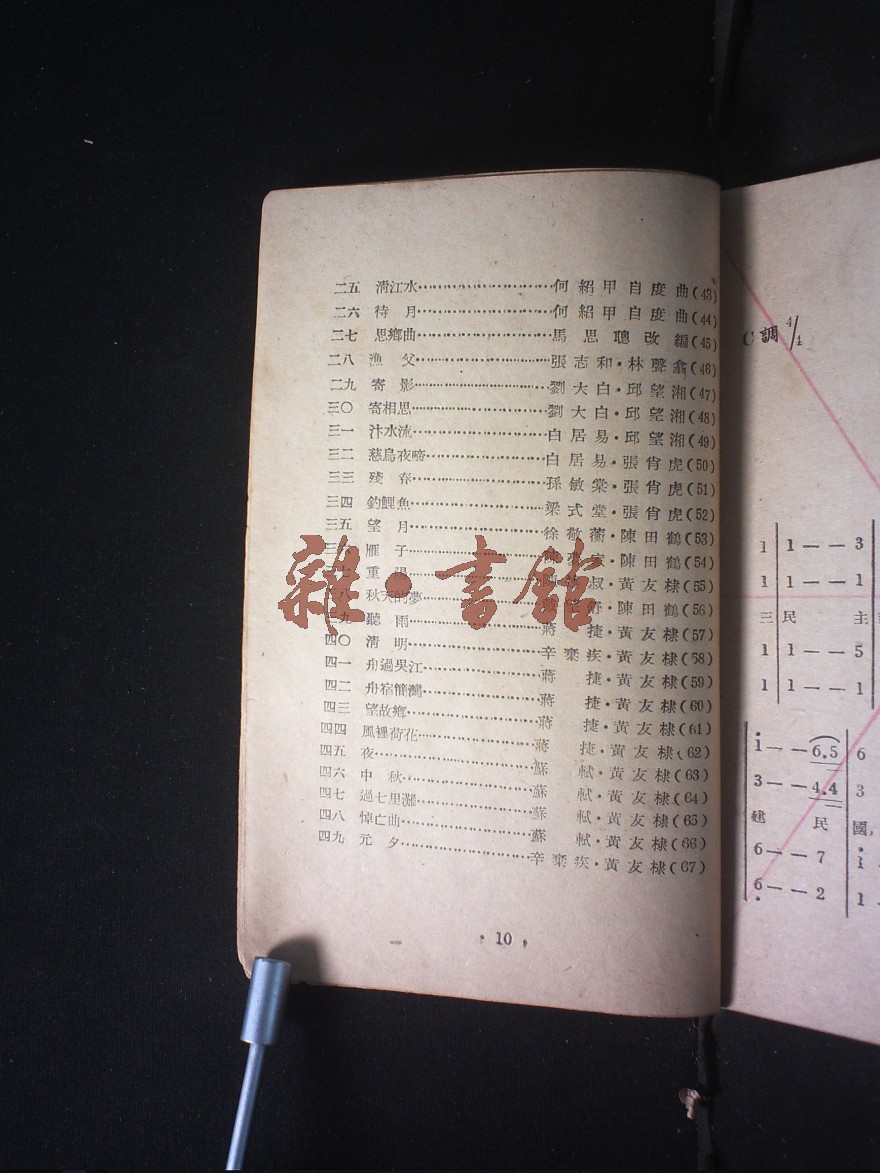 二五 清江水 何紹甲自度曲(43)
二六 待月 何紹甲自度曲(44)
二七 思鄉曲 馬思聰改編(45)
二八 漁父 張志和·林聲翕(46)
二九 寄影 劉大白·邱望湘(47)
三〇 寄相思 劉大白·邱望湘(48)
三一 汴水流 白居易·邱望湘(49)
三二 慈烏夜啼 白居易·張肖虎(50)
三三 殘春 孫敏棠·張肖虎(51)
三四 釣鯉魚 梁式堂·張肖虎(52)
三五 望月 徐敬蘅·陳田鶴(53)
雁子 陳田鶴(54)
重陽 叔·黃友棣(55)
秋天的夢 陳田鶴(56)
聽雨 蔣捷·黃友棣(57)
四〇 清明 辛棄疾·黃友棣(58)
四一 舟過吳江 蔣捷·黃友棣(59)
四二 舟宿灣 蔣捷·黃友棣(60)
四三 望故鄉 蔣捷·黃友棣(61)
四四 風裡荷花 蔣捷·黃友棣(62)
四五 夜 蘇軾·黃友棣(63)
四六 中秋 蘇軾·黃友棣(64)
四七 過七里灘 蘇軾·黃友棣(65)
四八 悼亡曲 蘇軾·黃友棣(66)
四九 元夕 辛棄疾·黃友棣(67)
·10·
雜·書館
C調 4/4
1 | 1 — — 3
1 | 1 — — 1
三 民 主
1 | 1 — — 5
1 | 1 — — 1
i — — 6.5 | 6
3 — — 4.4 | 3
建 民 國,
6 — — 7 | i
6 — — 2 | 1